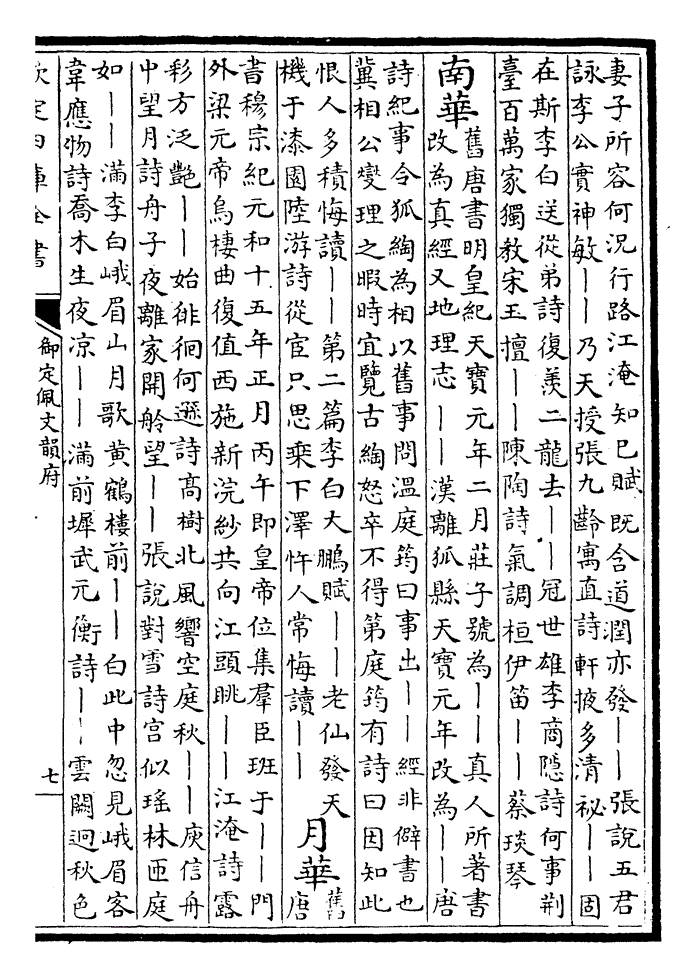 妻子所容何況行路江淹知己賦既含道潤亦發——張說五君
詠李公實神敏——乃天授張九齡寓直詩軒掖多清祕——固
在斯李白送從弟詩復羨二龍去——冠世雄李商隱詩何事荆
臺百萬家獨教宋玉擅——陳陶詩氣調桓伊笛——蔡琰琴
南華
舊唐書明皇紀天寶元年二月莊子號為——真人所著書
改為真經又地理志——漢離狐縣天寶元年改為——唐
詩紀事令狐綯為相以舊事問溫庭筠曰事出——經非僻書也
冀相公燮理之暇時宜覽古綯怒卒不得第庭筠有詩曰因知此
恨人多積悔讀——第二篇李白大鵬賦——老仙發天
機于漆園陸游詩從宦只思乘下澤忤人常悔讀——
月華
舊
唐
書穆宗紀元和十五年正月丙午即皇帝位集羣臣班于——門
外梁元帝烏棲曲復值西施新浣紗共向江頭眺——江淹詩露
彩方泛艷——始徘徊何遜詩高樹北風響空庭秋——庾信舟
中望月詩舟子夜離家開舲望——張說對雪詩宮似瑤林匝庭
如——滿李白峨眉山月歌黃鶴樓前——白此中忽見峨眉客
韋應物詩喬木生夜凉——滿前墀武元衡詩——雲闕迥秋色
欽定四庫全書
御定佩文韻府
七